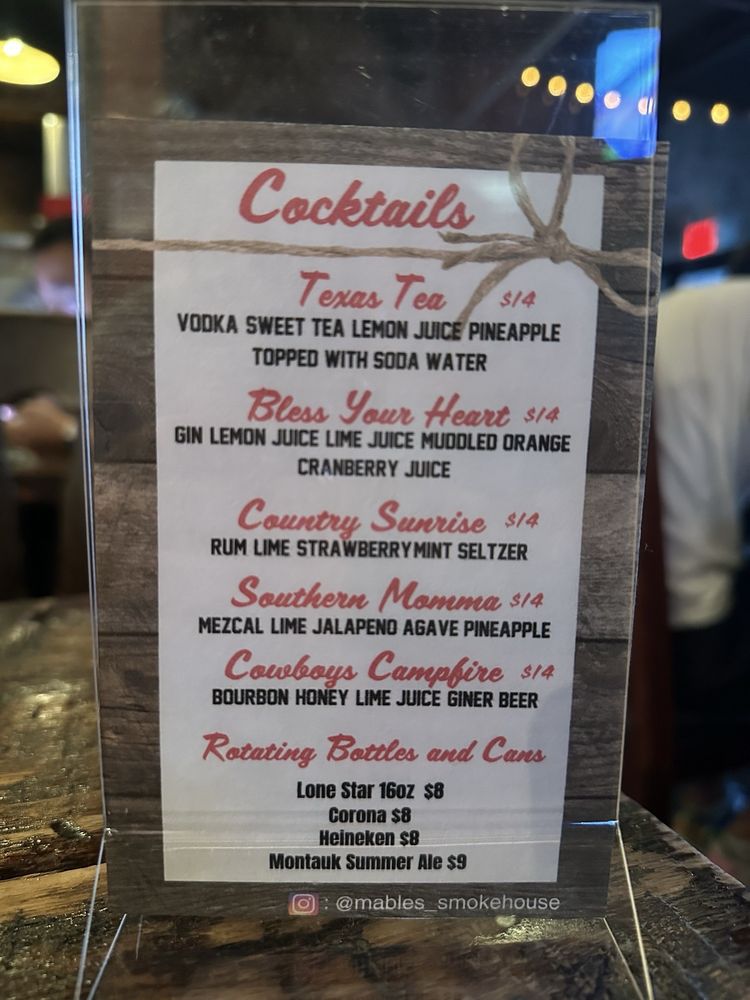 Cocktails
Texas Tea $14
VODKA SWEET TEA LEMON JUICE PINEAPPLE
TOPPED WITH SODA WATER
Bless Your Heart $14
GIN LEMON JUICE LIME JUICE MUDDLED ORANGE
CRANBERRY JUICE
Country Sunrise $14
RUM LIME STRAWBERRY MINT SELTZER
Southern Momma $14
MEZCAL LIME JALAPENO AGAVE PINEAPPLE
Cowboys Campfire $14
BOURBON HONEY LIME JUICE GINER BEER
Rotating Bottles and Cans
Lone Star 16oz $8
Corona $8
Heineken $8
Montauk Summer Ale $9
: @mables_smokehouse